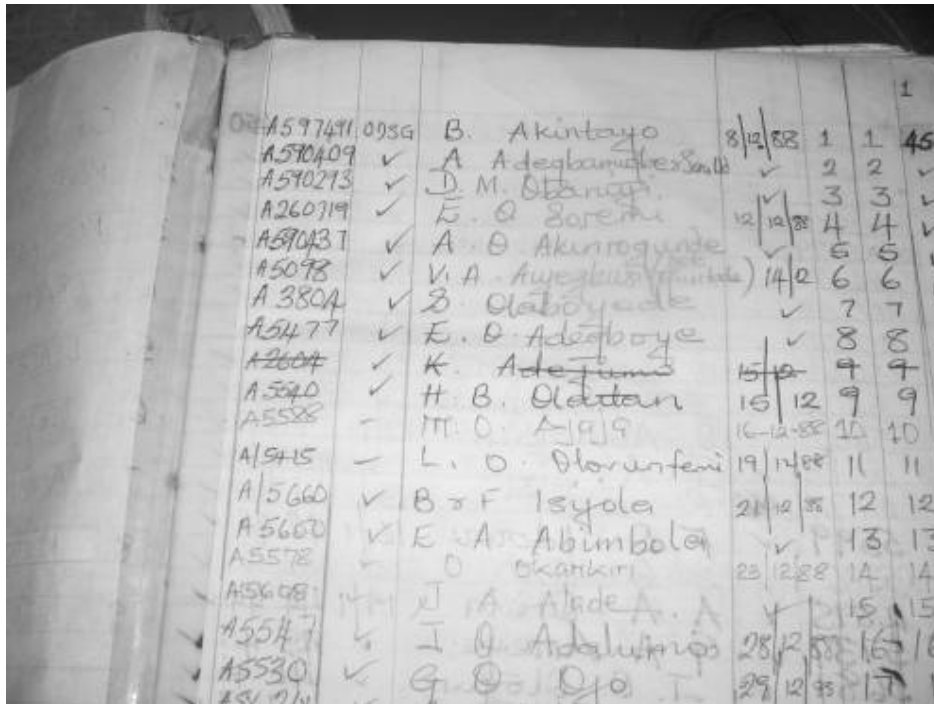 1
A597491 ODSG B. Akintayo 8/12/88 1 1 45
A590409 ✓ A ✓ 2 2 ✓
A590293 ✓ D. M. ✓ 3 3 ✓
A260719 ✓ E. O 12/12/88 4 4 ✓
A590437 ✓ A O Akinrogunde ✓ 5 5
A5098 ✓ V. A. ) 14/12 6 6
A 380A ✓ S Olaboyede ✓ 7 7
A5477 ✓ E. O. Adegboye ✓ 8 8
A2604 ✓ K. Adejumo 15/12 9 9
A5540 ✓ H. B. Olatan 15/12 9 9
A5588 - M. O. Ajaja 16-12-88 10 10
A/5415 - L. O. Olorunfemi 19/12/88 11 11
A/5660 ✓ B & F Isijola 21/12/88 12 12
A5660 ✓ E A Abimbola ✓ 13 13
A5578 ✓ O Okankiri 23/12/88 14 14
A5608 J A Alade ✓ 15 15
A5547 ✓ J O 28/12/88 16 16
A5530 ✓ G O Ojo 29/12/88 17 1